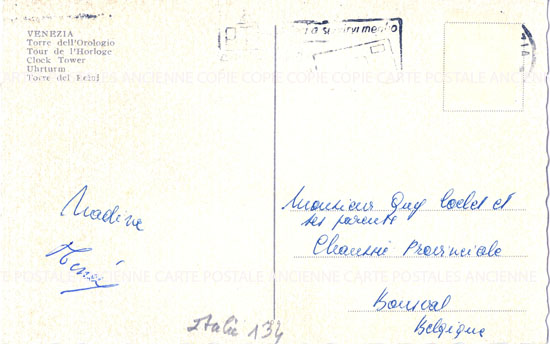 VENEZIA
Torre dell'Orologio
Tour de l'Horloge
Clock Tower
Uhrturm
Torre del Reloj
COPIE CARTE POSTALES ANCIENNE COPIE CARTE POSTALES ANCIENNE COPIE CARTE POSTALES ANCIENNE
Nadine
René
Monsieur Guy et
ses parents
Chaussée Provinciale
Bonsval
Belgique
CARTE POSTALES ANCIENNE CARTE POSTALES ANCIENNE CARTE POSTALES ANCIENNE
Italie 134